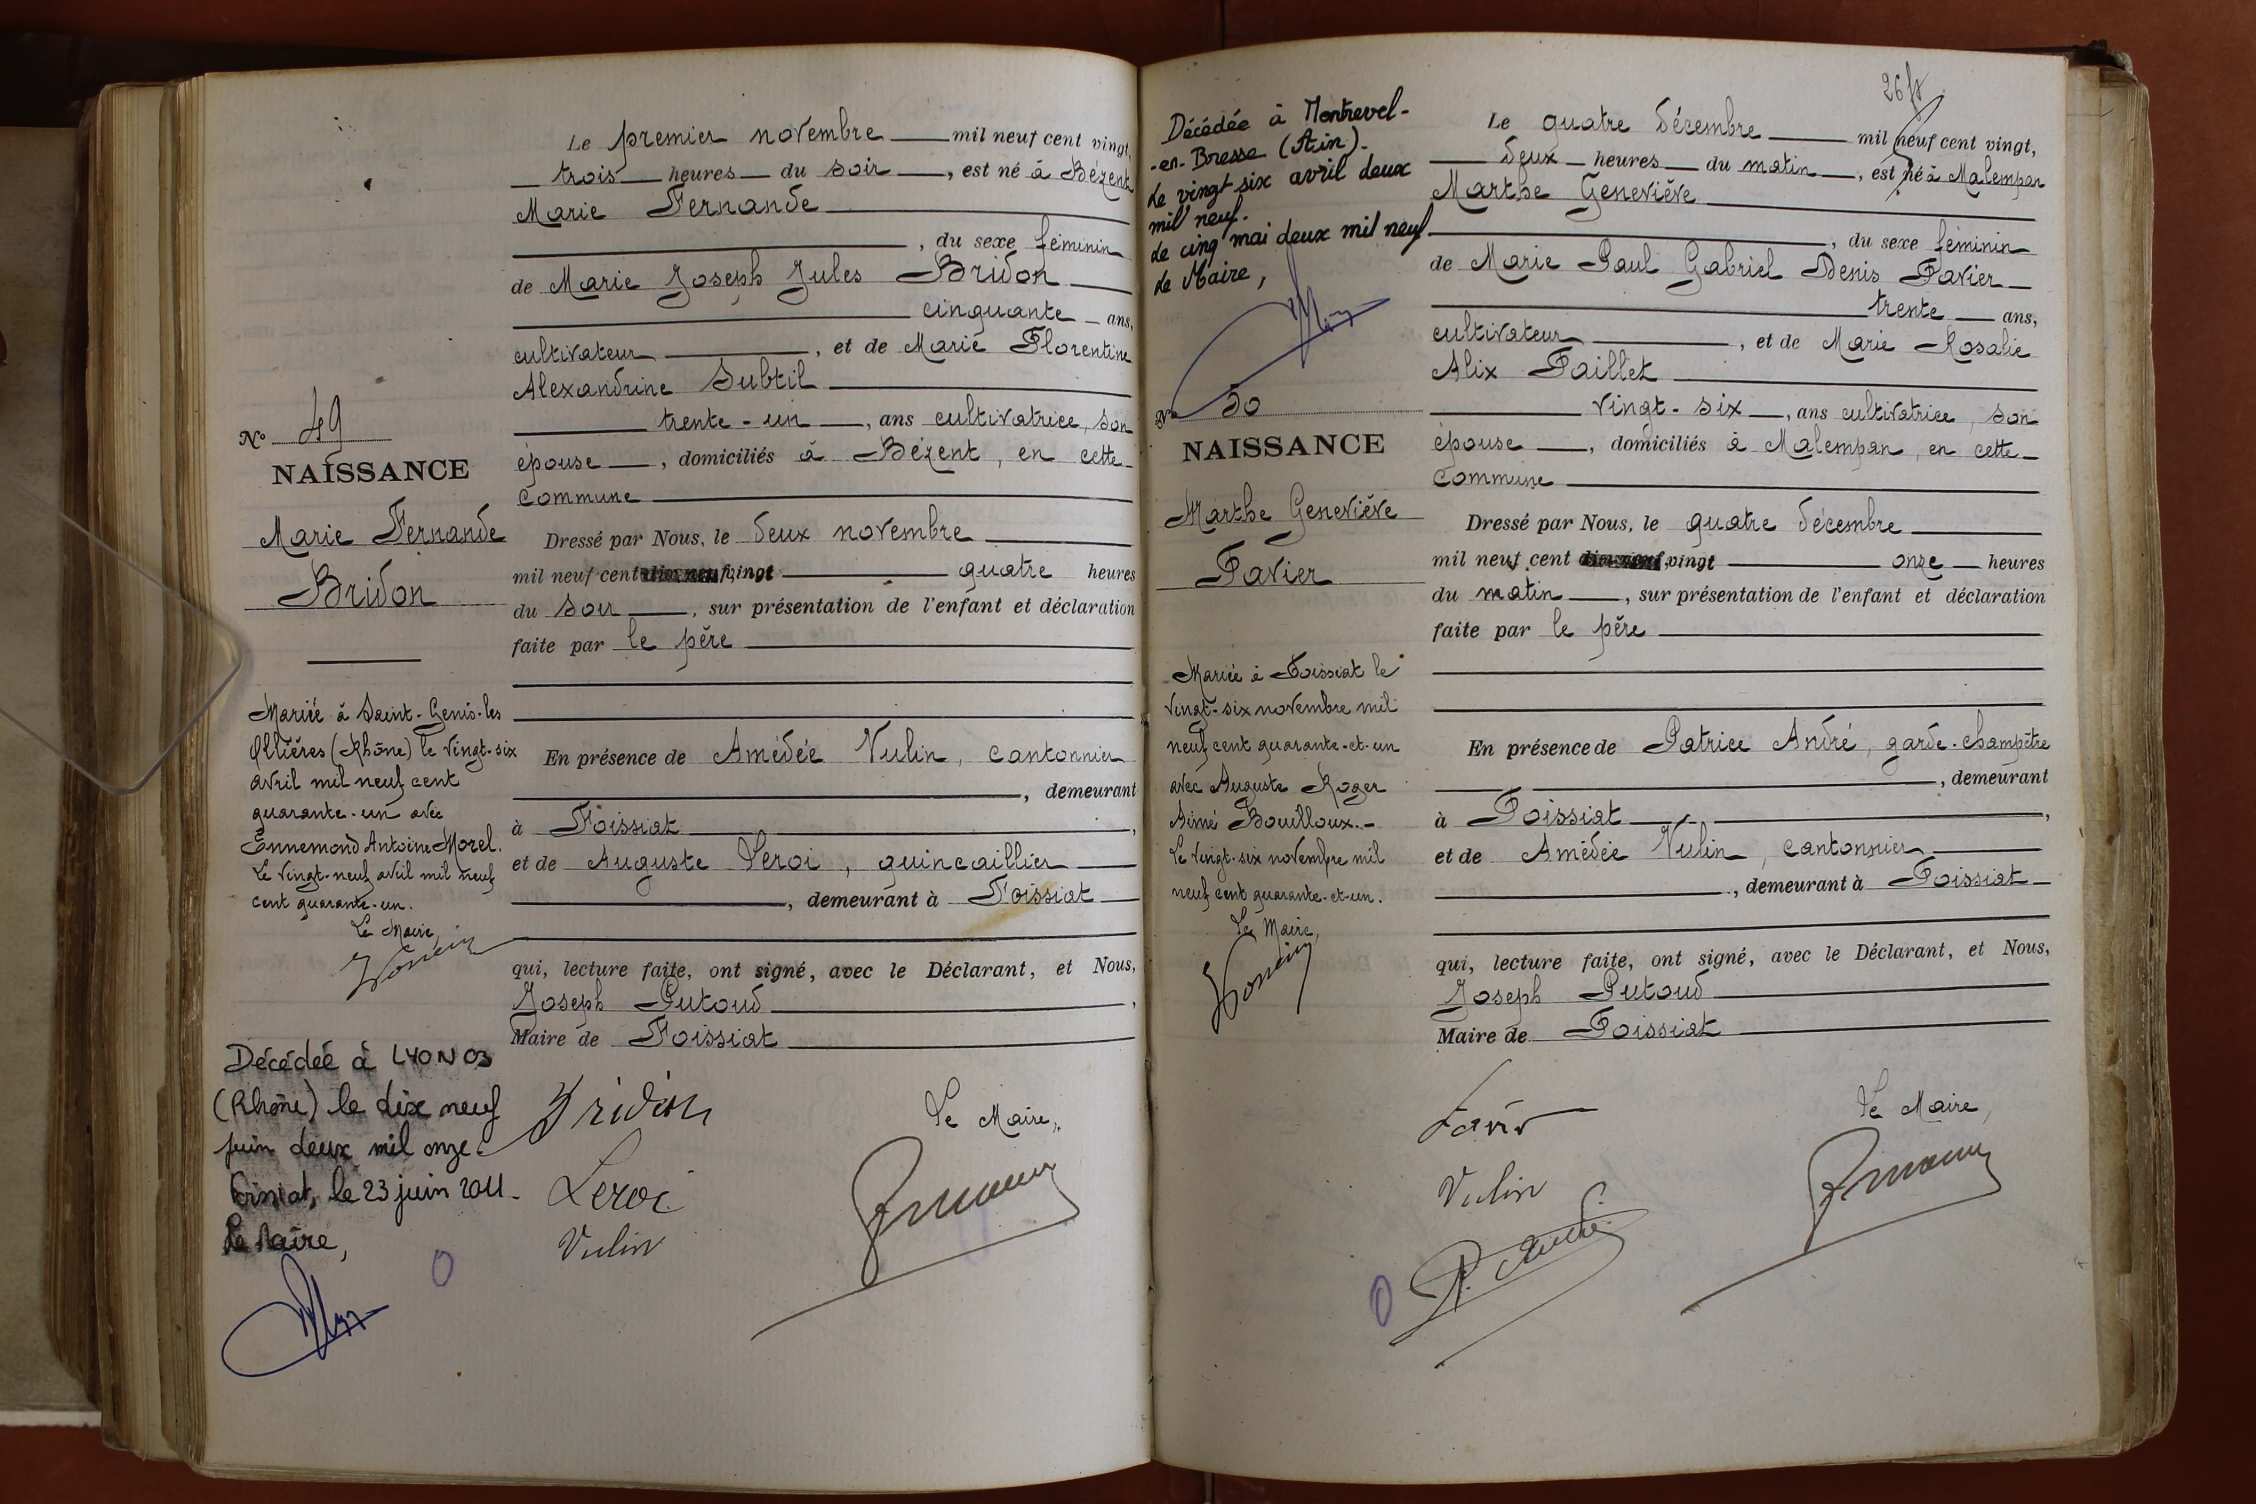 Le premier novembre mil neuf cent vingt,
trois heures du soir, est né à Bézent
Marie Fernande
, du sexe féminin
de Marie Joseph Jules Bridon
cinquante ans,
cultivateur, et de Marie Florentine
Alexandrine Subtil
trente-un, ans cultivatrice, son
épouse, domiciliés à Bézent, en cette
commune
Dressé par Nous, le deux novembre
mil neuf cent vingt quatre heures
du soir, sur présentation de l'enfant et déclaration
faite par le père
En présence de Amédée Vulin, cantonnier
, demeurant
à Foissiat,
et de Auguste Leroi, quincaillier
, demeurant à Foissiat
qui, lecture faite, ont signé, avec le Déclarant, et Nous,
Joseph Putoud,
Maire de Foissiat
Bridon
Le Maire,
Leroi
Vulin
No 49
NAISSANCE
Marie Fernande
Bridon
Mariée à Saint-Genis-les
Ollières (Rhône) le vingt-six
avril mil neuf cent
quarante-un avec
Ennemond Antoine Morel.
Le vingt-neuf avril mil neuf
cent quarante-un.
Le Maire,
Décédée à LYON 03
(Rhône) le dix neuf
juin deux mil onze.
Foissiat, le 23 juin 2011.
Le Maire,
Décédée à Montrevel-
-en-Bresse (Ain).
Le vingt six avril deux
mil neuf.
Le cinq mai deux mil neuf
Le Maire,
No 50
NAISSANCE
Marthe Geneviève
Favier
Mariée à Foissiat le
vingt-six novembre mil
neuf cent quarante-et-un
avec Auguste Roger
Aimé Bouilloux.-
Le vingt-six novembre mil
neuf cent quarante-et-un.
Le Maire,
Le quatre décembre mil neuf cent vingt,
deux heures du matin, est né à Malempan
Marthe Geneviève
, du sexe féminin
de Marie Paul Gabriel Denis Favier
trente ans,
cultivateur, et de Marie Rosalie
Alix Paillet
vingt-six, ans cultivatrice, son
épouse, domiciliés à Malempan, en cette
commune
Dressé par Nous, le quatre décembre
mil neuf cent vingt onze heures
du matin, sur présentation de l'enfant et déclaration
faite par le père
En présence de Patrice André, garde-champêtre
, demeurant
à Foissiat,
et de Amédée Vulin, cantonnier
, demeurant à Foissiat
qui, lecture faite, ont signé, avec le Déclarant, et Nous,
Joseph Putoud
Maire de Foissiat
Favier
Le Maire,
Vulin
P. André